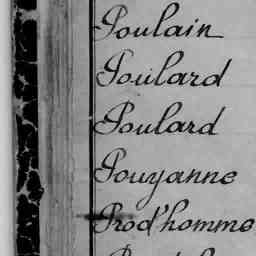 Poulain
Poulard
Poulard
Pouyanne
Prod'homme